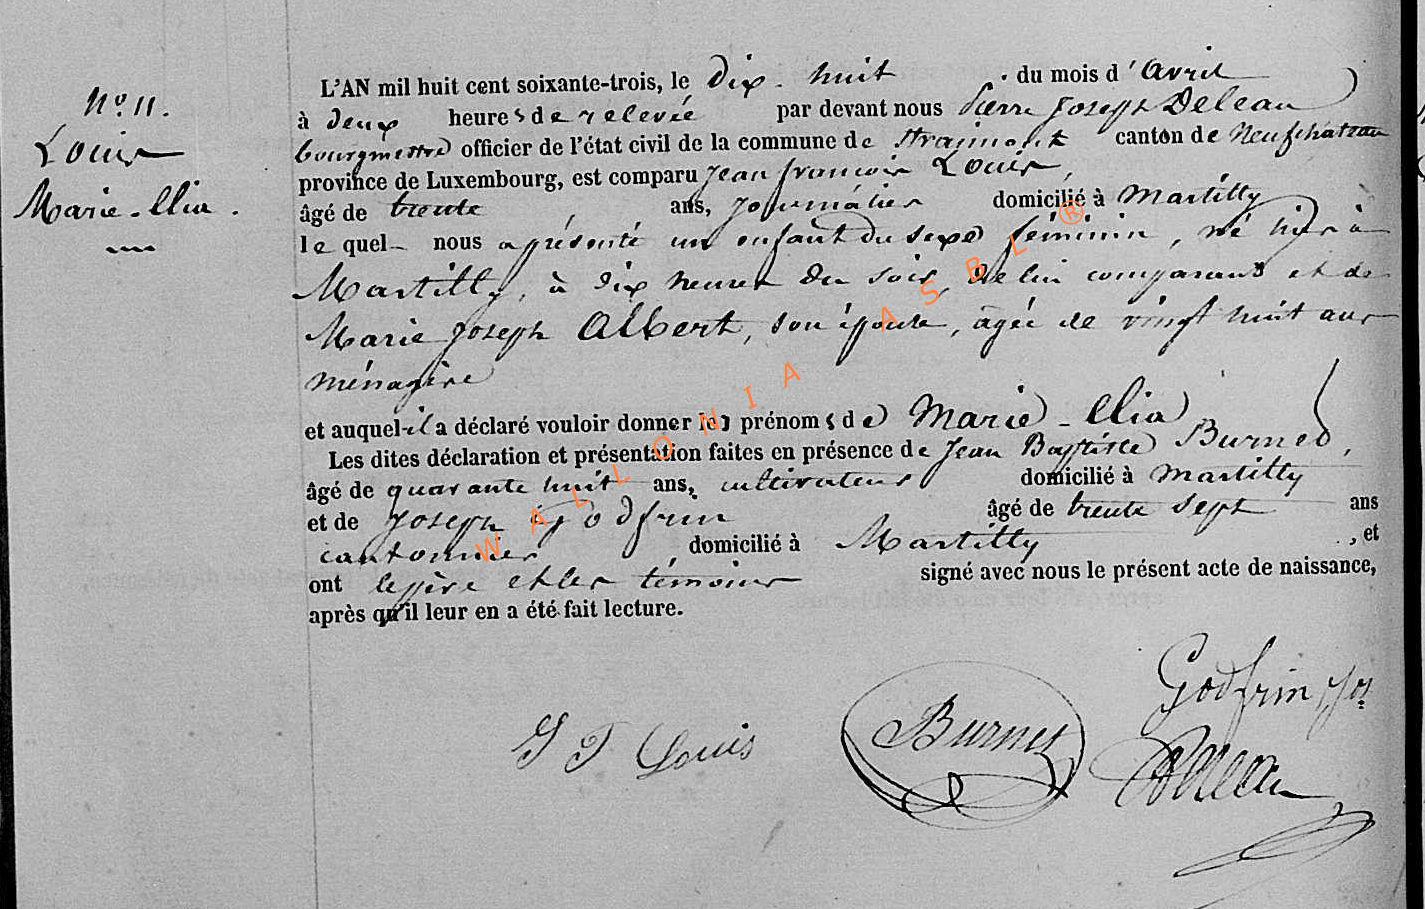 N° 11.
Louis
Marie-Elia.
L'AN mil huit cent soixante-trois, le dix-huit du mois d'Avril
à deux heures de relevée par devant nous Pierre Joseph Deleau
bourgmestre officier de l'état civil de la commune de Straimont canton de Neufchateau
province de Luxembourg, est comparu Jean françois Louis,
âgé de trente ans, journalier domicilié à Martilly
lequel nous a présenté un enfant du sexe féminin, né hier à
Martilly, à dix heures du soir, de lui comparant et de
Marie Joseph Albert, son épouse, âgée de vingt huit ans
ménagère
et auquel il a déclaré vouloir donner les prénoms de Marie-Elia
Les dites déclaration et présentation faites en présence de Jean Baptiste Burnet,
âgé de quarante huit ans, cultivateur domicilié à Martilly
et de Joseph Godfrin âgé de trente sept ans
cantonnier, domicilié à Martilly, et
ont le père et les témoins signé avec nous le présent acte de naissance,
après qu'il leur en a été fait lecture.
WALLONIA ASBL ®
J F Louis
Burnet
Godfrin Jos
Deleau